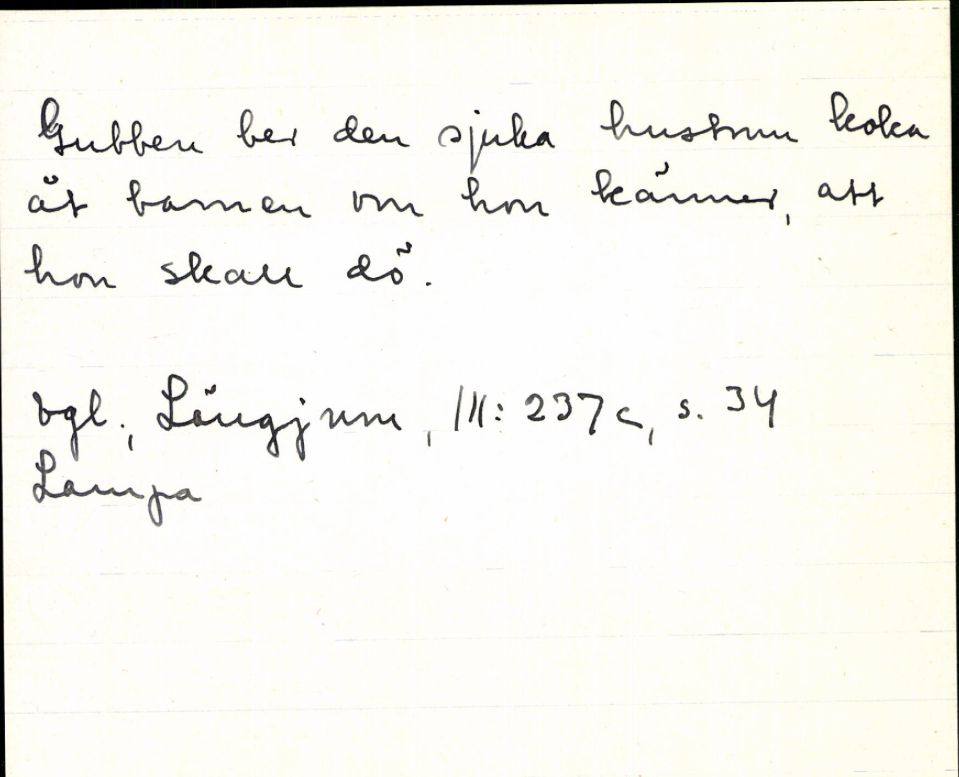 Gubben ber den sjuka hustrun koka
åt barnen om hon känner, att
hon skall dö.
Vgl., Längjum, III: 237c, s. 34
Lampa